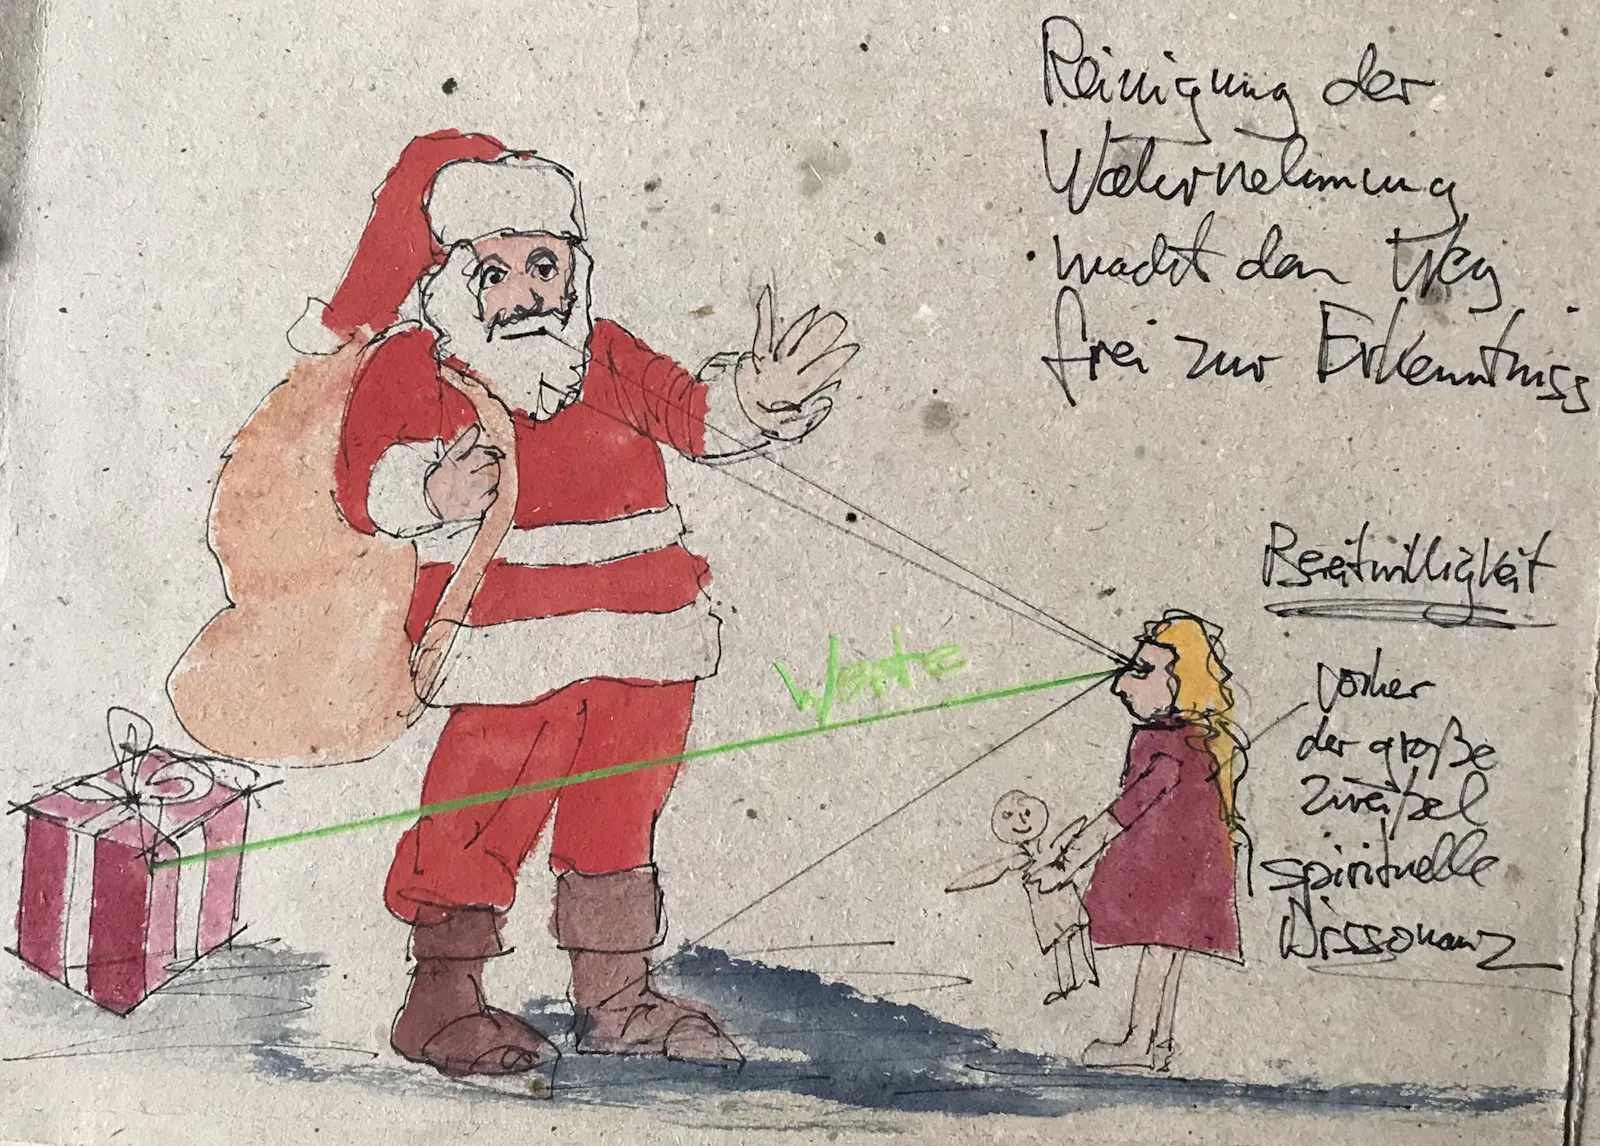 Reinigung der
Wahrnehmung
macht den Weg
frei zur Erkenntniss
Bereitwilligkeit
Werte
vorher
der große
zweifel
spirituelle
Dissonanz